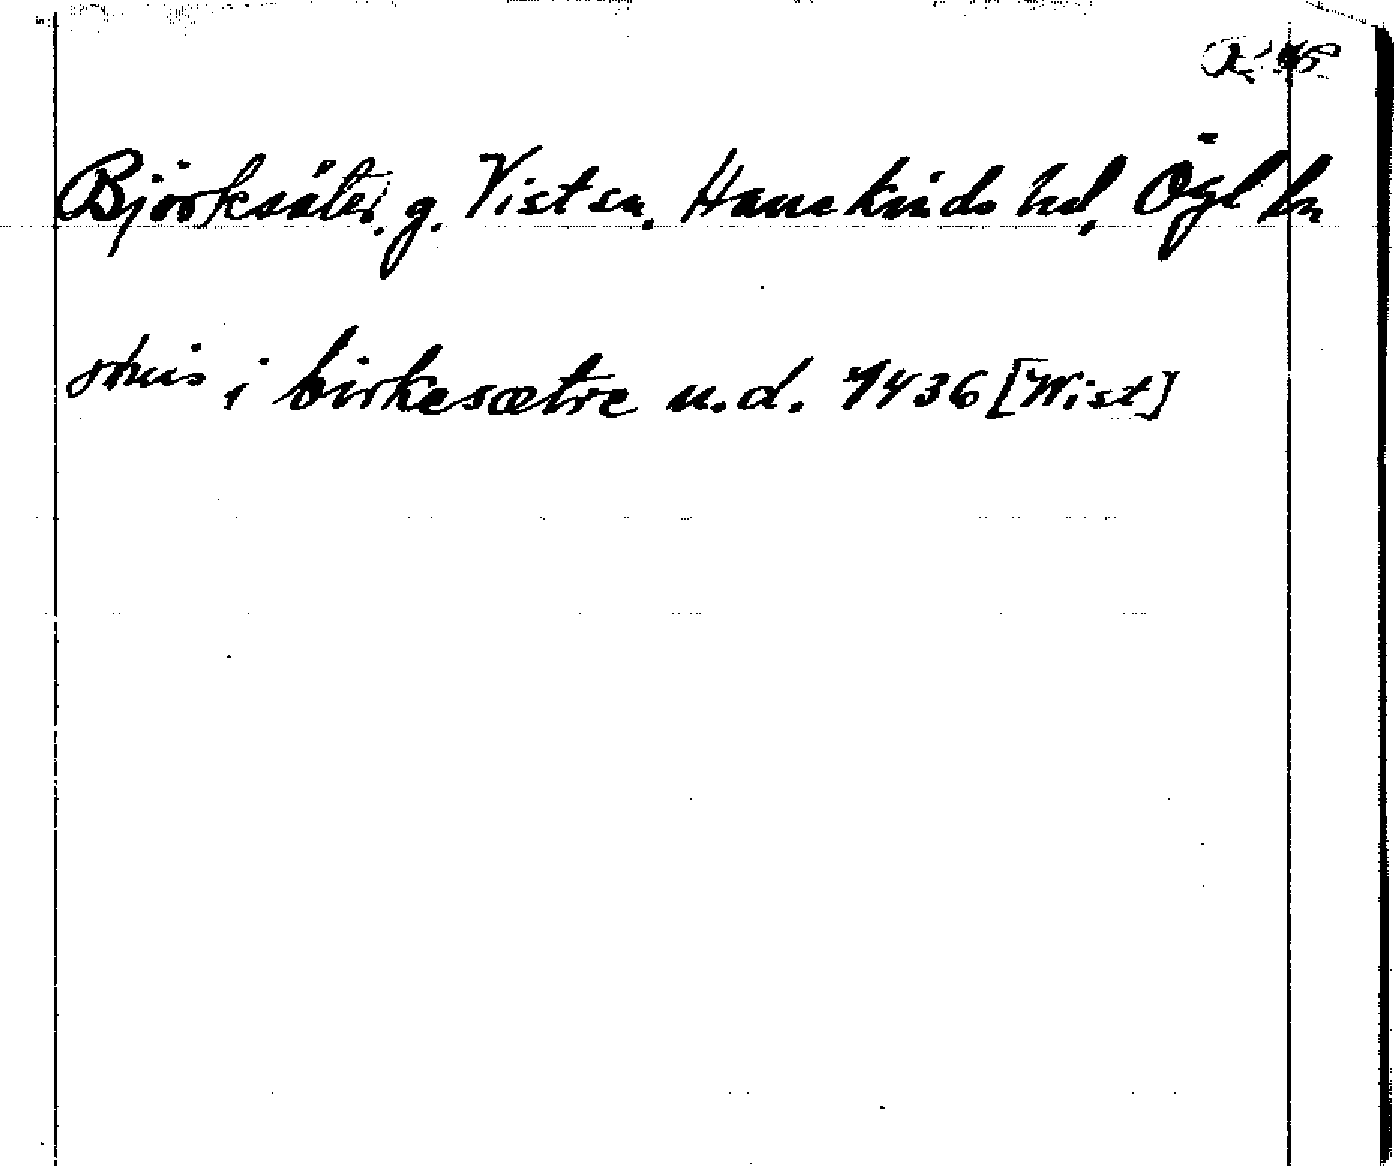 Björksäter, g. Vist sn. Hanekinds hd, Ögl ln
i birkesætre u.d. 1436 [Wist]